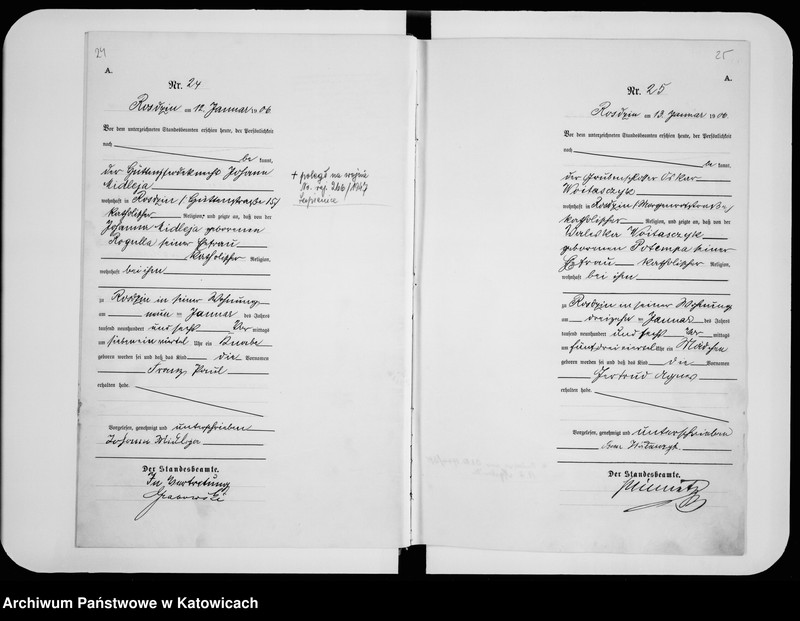 24
A.
Nr. 24
Rosdzin am 12. Januar 1906.
Vor dem unterzeichneten Standesbeamten erschien heute, der Persönlichkeit
nach
be kannt,
der Johann
Midleja
wohnhaft in Rosdzin, Hüttenstraße 15,
katholischer Religion, und zeigte an, daß von der
Johanna Midleja geborenen
Rogulla seiner Ehefrau
katholischer Religion,
wohnhaft bei ihm
zu Rosdzin in seiner Wohnung
am neun ten Januar des Jahres
tausend neunhundert und sechs Vor mittags
um sieben ein viertel Uhr ein Knabe
geboren worden sei und daß das Kind die Vornamen
Franz Paul
erhalten habe.
Vorgelesen, genehmigt und unterschrieben
Johann Midleja
Der Standesbeamte.
In Vertretung
Grabowski
+ poległ na wojnie
No. rej. 266/1947
25
A.
Nr. 25
Rosdzin am 13. Januar 1906.
Vor dem unterzeichneten Standesbeamten erschien heute, der Persönlichkeit
nach
be kannt,
der Grubenschlosser Oskar
Woitasczyk
wohnhaft in Rosdzin,
katholischer Religion, und zeigte an, daß von der
Waleska Woitasczyk
geborenen Potempa seiner
Ehefrau katholischer Religion,
wohnhaft bei ihm
zu Rosdzin in seiner Wohnung
am dreizehn ten Januar des Jahres
tausend neunhundert und sechs Vor mittags
um fünf dreiviertel Uhr ein Mädchen
geboren worden sei und daß das Kind die Vornamen
Gertrud Agnes
erhalten habe.
Vorgelesen, genehmigt und unterschrieben
Der Standesbeamte.
Archiwum Państwowe w Katowicach